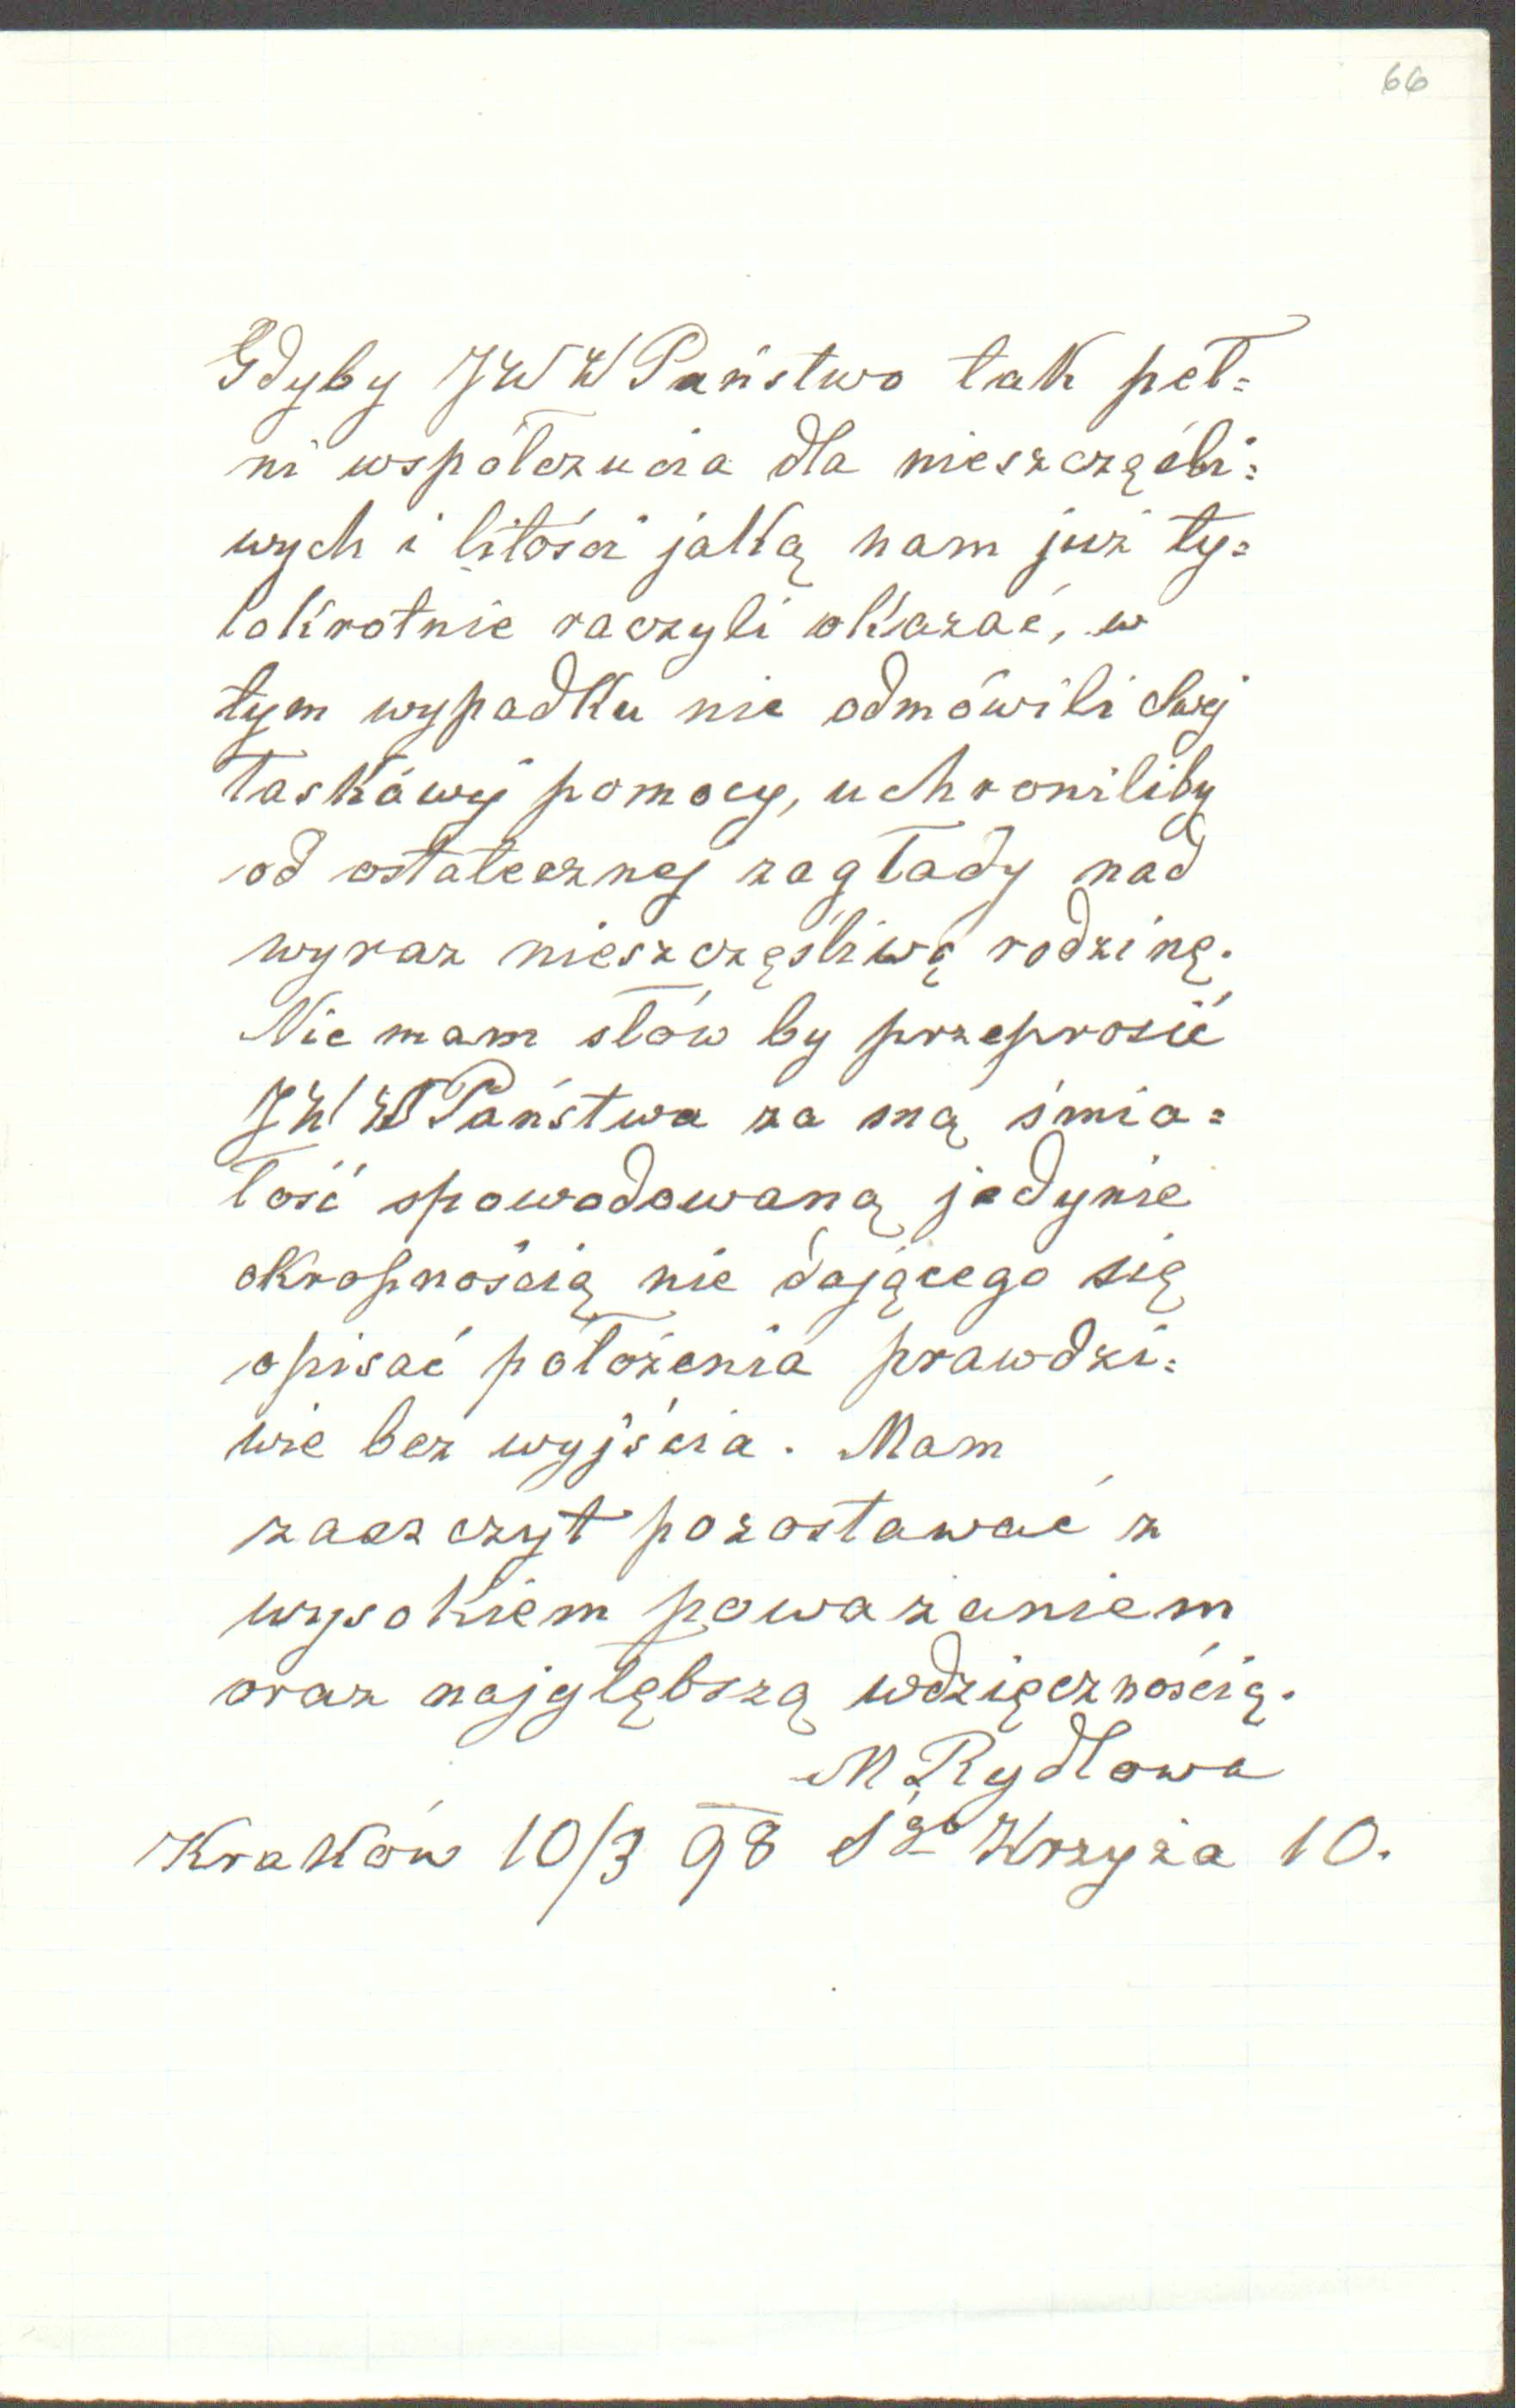 66
Gdyby JWW Państwo tak peł=
ni współczucia dla nieszczęśli=
wych i litości jaką nam już ty=
lokrotnie raczyli okazać, w
tym wypadku nie odmówili swej
łaskawej pomocy, uchroniliby
od ostatecznej zagłady nad
wyraz nieszczęśliwą rodzinę.
Nie mam słów by przeprosić
JWW Państwa za mą śmia=
łość spowodowaną jedynie
okropnością nie dającego się
opisać położenia prawdzi=
wie bez wyjścia. Mam
zaszczyt pozostawać z
wysokiem poważaniem
oraz najgłębszą wdzięcznością.
M Rydlowa
Kraków 10/3 98 Sgo Krzyża 10.